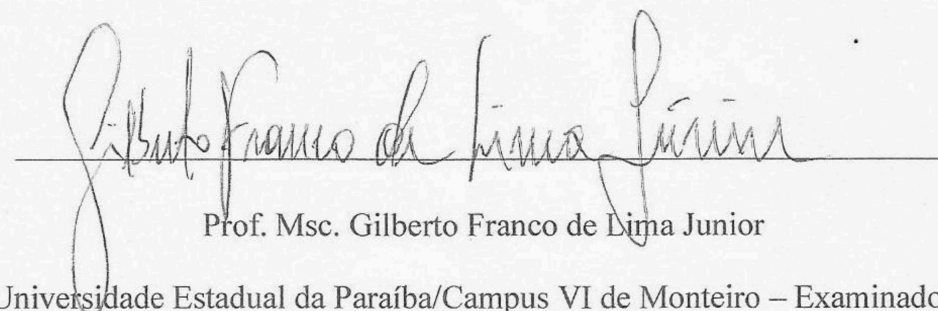 Gilberto Franco de Lima Júnior
Prof. Msc. Gilberto Franco de Lima Junior
Universidade Estadual da Paraíba/Campus VI de Monteiro – Examinado